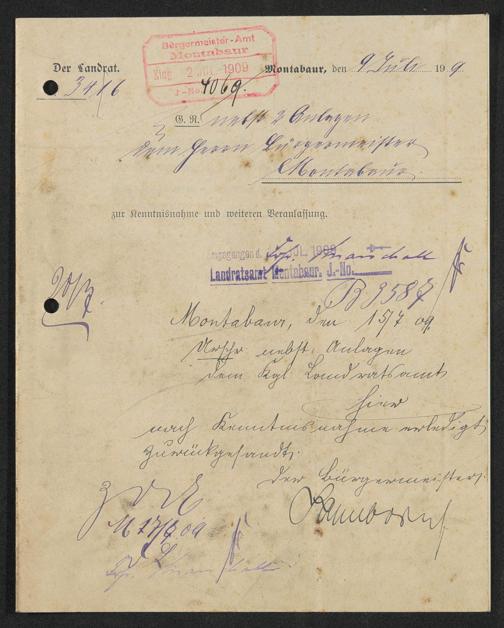 Bürgermeister-Amt
Montabaur
Eing. 2 JUL. 1909
J.-No. 4069.
Der Landrat.
Montabaur, den 9 Juli 190 9.
G. R. nebst 2 Anlagen
dem Herrn Bürgermeister
Montabaur
zur Kenntnisnahme und weiteren Veranlassung.
Landratsamt Montabaur. J.-No.
B 3587
Montabaur, den 15/7 09.
Urschr nebst Anlagen
dem Kgl Landratsamt
hier
nach Kenntnisnahme erledigt
zurückgesandt.
Der Bürgermeister.
M 17/7 09